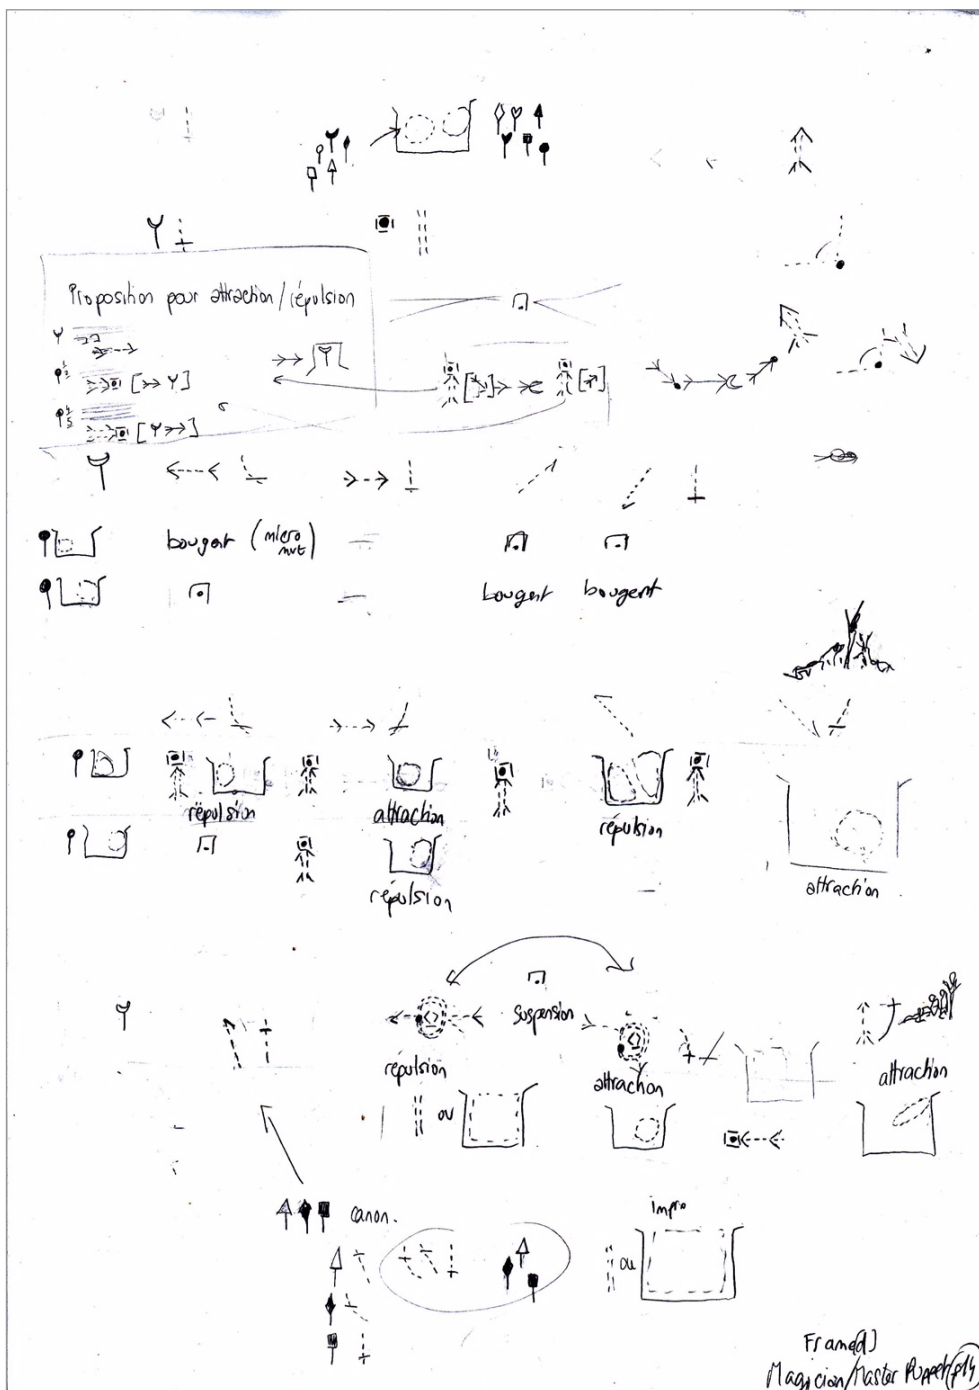 Proposition pour attraction/répulsion
bougent (micro
mvt)
bougent bougent
répulsion attraction répulsion
répulsion attraction
suspension
répulsion attraction attraction
ou
canon.
impro
ou
Frame[d]
Magician/Master Puppet (p14)